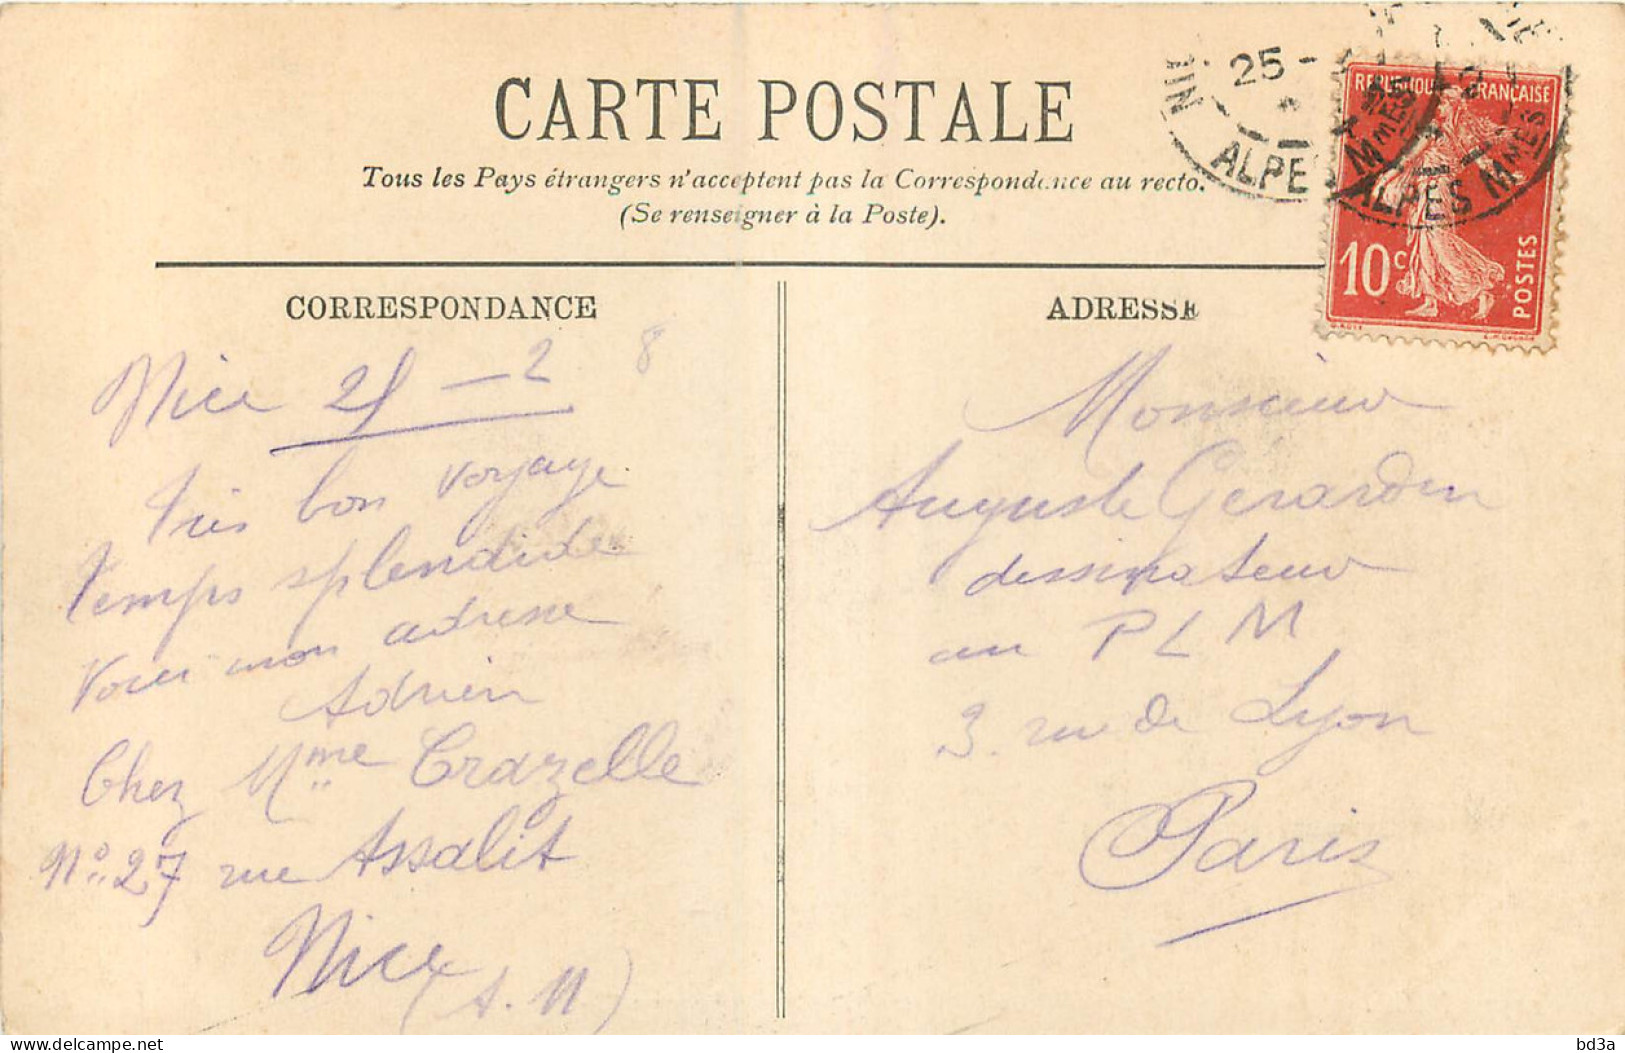 CARTE POSTALE
Tous les Pays étrangers n'acceptent pas la Correspondance au recto.
(Se renseigner à la Poste).
25 -
ALPES Mmes
ALPES Mmes
REPUBLIQUE FRANÇAISE
10 c
POSTES
CORRESPONDANCE
Nice 25 - 2
8
Très bon voyage
Temps splendide
Voici mon adresse
Adrien
Chez Mme Crazelle
No 27 rue Assalit
Nice
(A. M)
ADRESSE
Monsieur
Auguste Gerardin
dessinateur
au P L M
3. rue de Lyon
Paris
bd3a